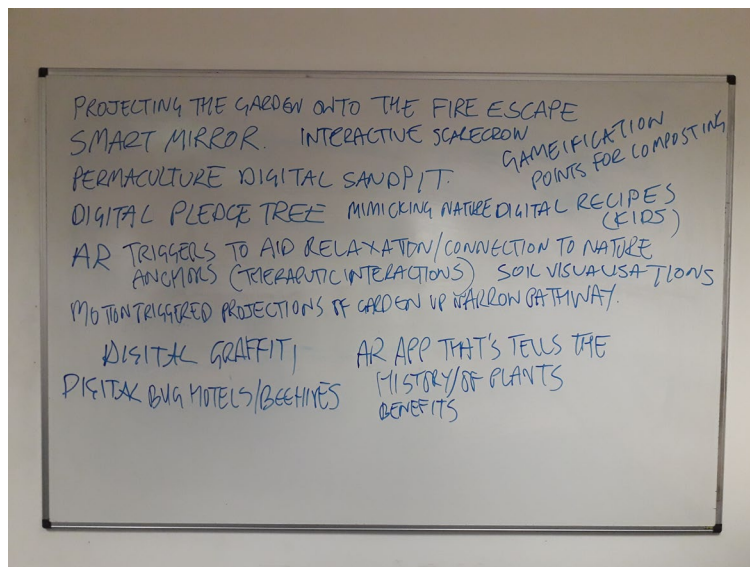 PROJECTING THE GARDEN ONTO THE FIRE ESCAPE
SMART MIRROR. INTERACTIVE SCARECROW
GAMEIFICATION
POINTS FOR COMPOSTING
PERMACULTURE DIGITAL SANDPIT.
DIGITAL PLEDGE TREE MIMICKING NATURE DIGITAL RECIPES
(KIDS)
AR TRIGGERS TO AID RELAXATION/CONNECTION TO NATURE
ANCHORS (THERAPUTIC INTERACTIONS) SOIL VISUALISATIONS
MOTION TRIGGERED PROJECTIONS OF GARDEN UP NARROW PATHWAY.
DIGITAL GRAFFITI
DIGITAL BUG HOTELS/BEEHIVES
AR APP THAT'S TELLS THE
HISTORY/OF PLANTS
BENEFITS